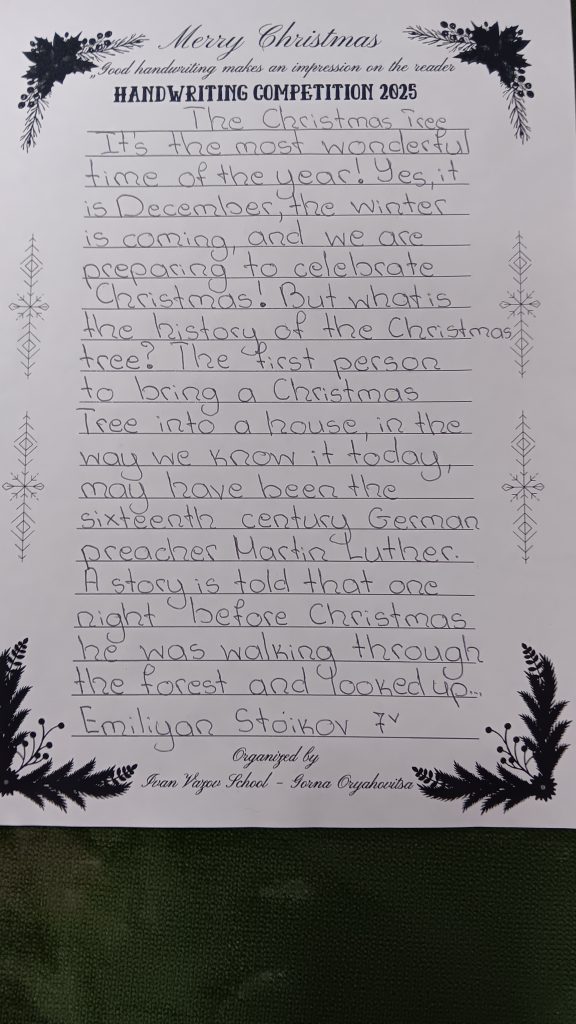 Merry Christmas
„Good handwriting makes an impression on the reader
HANDWRITING COMPETITION 2025
The Christmas Tree
It's the most wonderful
time of the year! Yes, it
is December, the winter
is coming, and we are
preparing to celebrate
Christmas! But what is
the history of the Christmas
tree? The first person
to bring a Christmas
Tree into a house, in the
way we know it today,
may have been the
sixteenth century German
preacher Martin Luther.
A story is told that one
night before Christmas
he was walking through
the forest and looked up...
Emiliyan Stoikov 7v
Organized by
Ivan Vazov School - Gorna Oryahovitsa